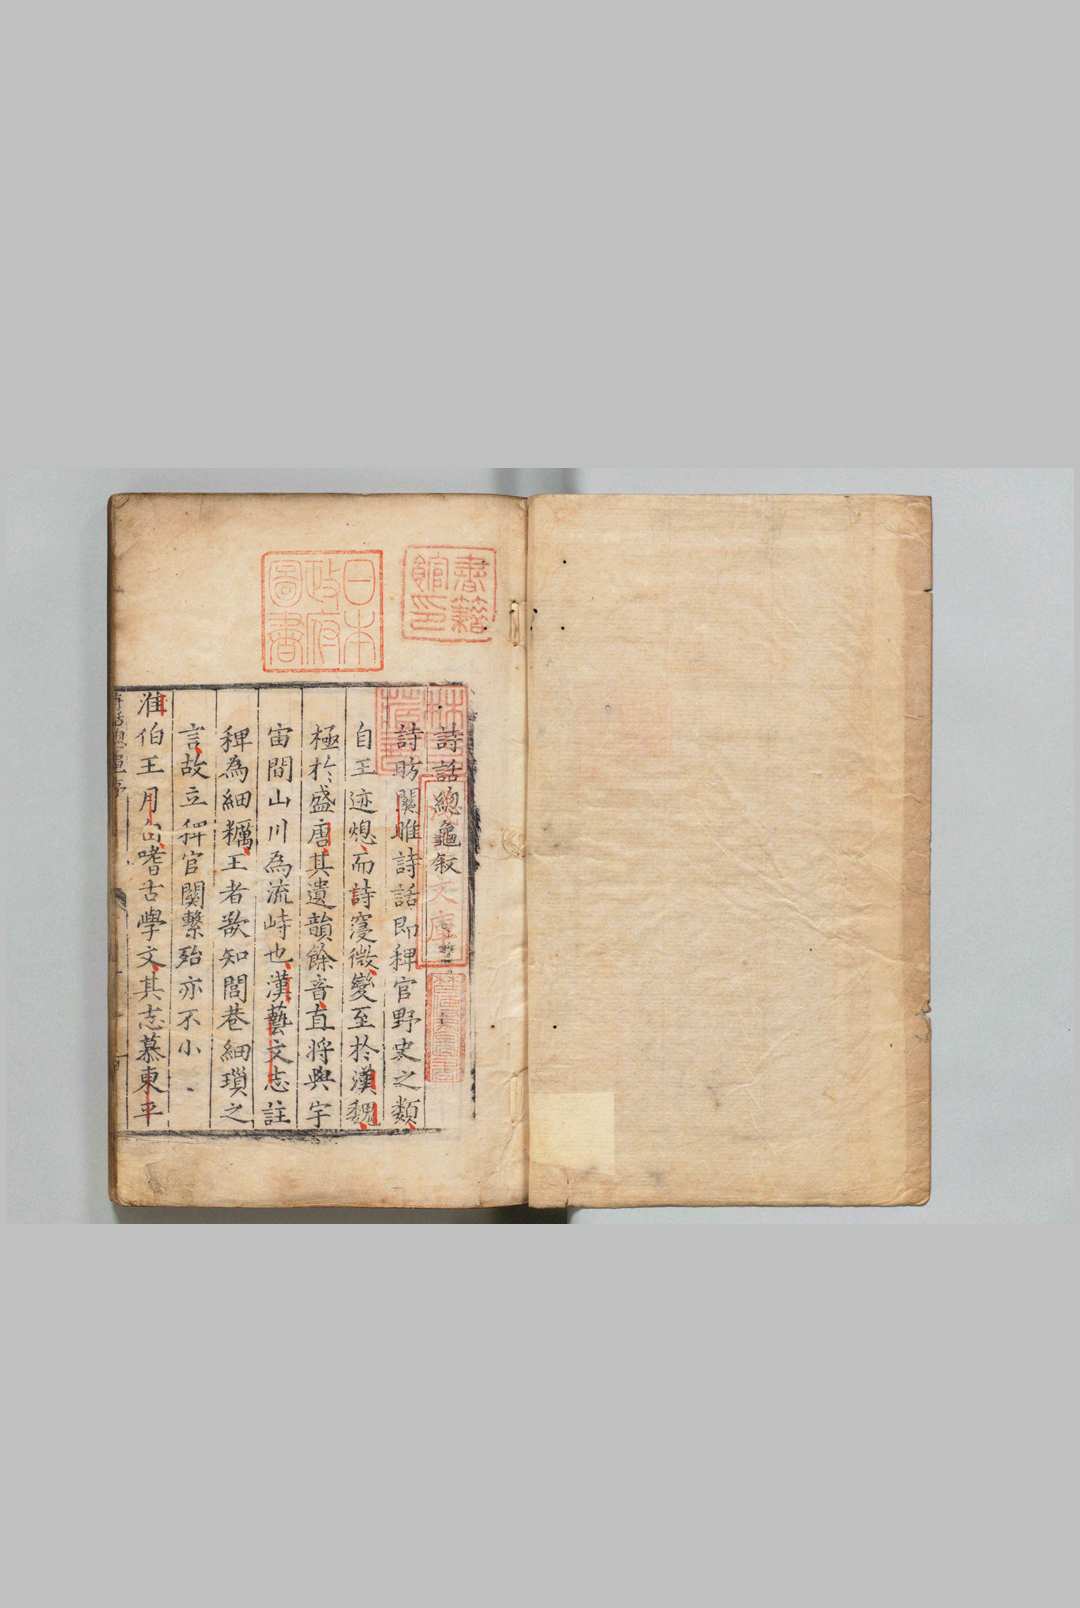 詩話總龜叙
詩昉關雎詩話即稗官野史之類
自王迹熄而詩寖微變至於漢魏
極於盛唐其遺韻餘音直將與宇
宙間山川為流峙也漢藝文志註
稗為細糲王者欲知閭巷細瑣之
言故立稗官關繫殆亦不小
淮伯王月窓嗜古學文其志慕東平
書籍館印
日本政府圖書